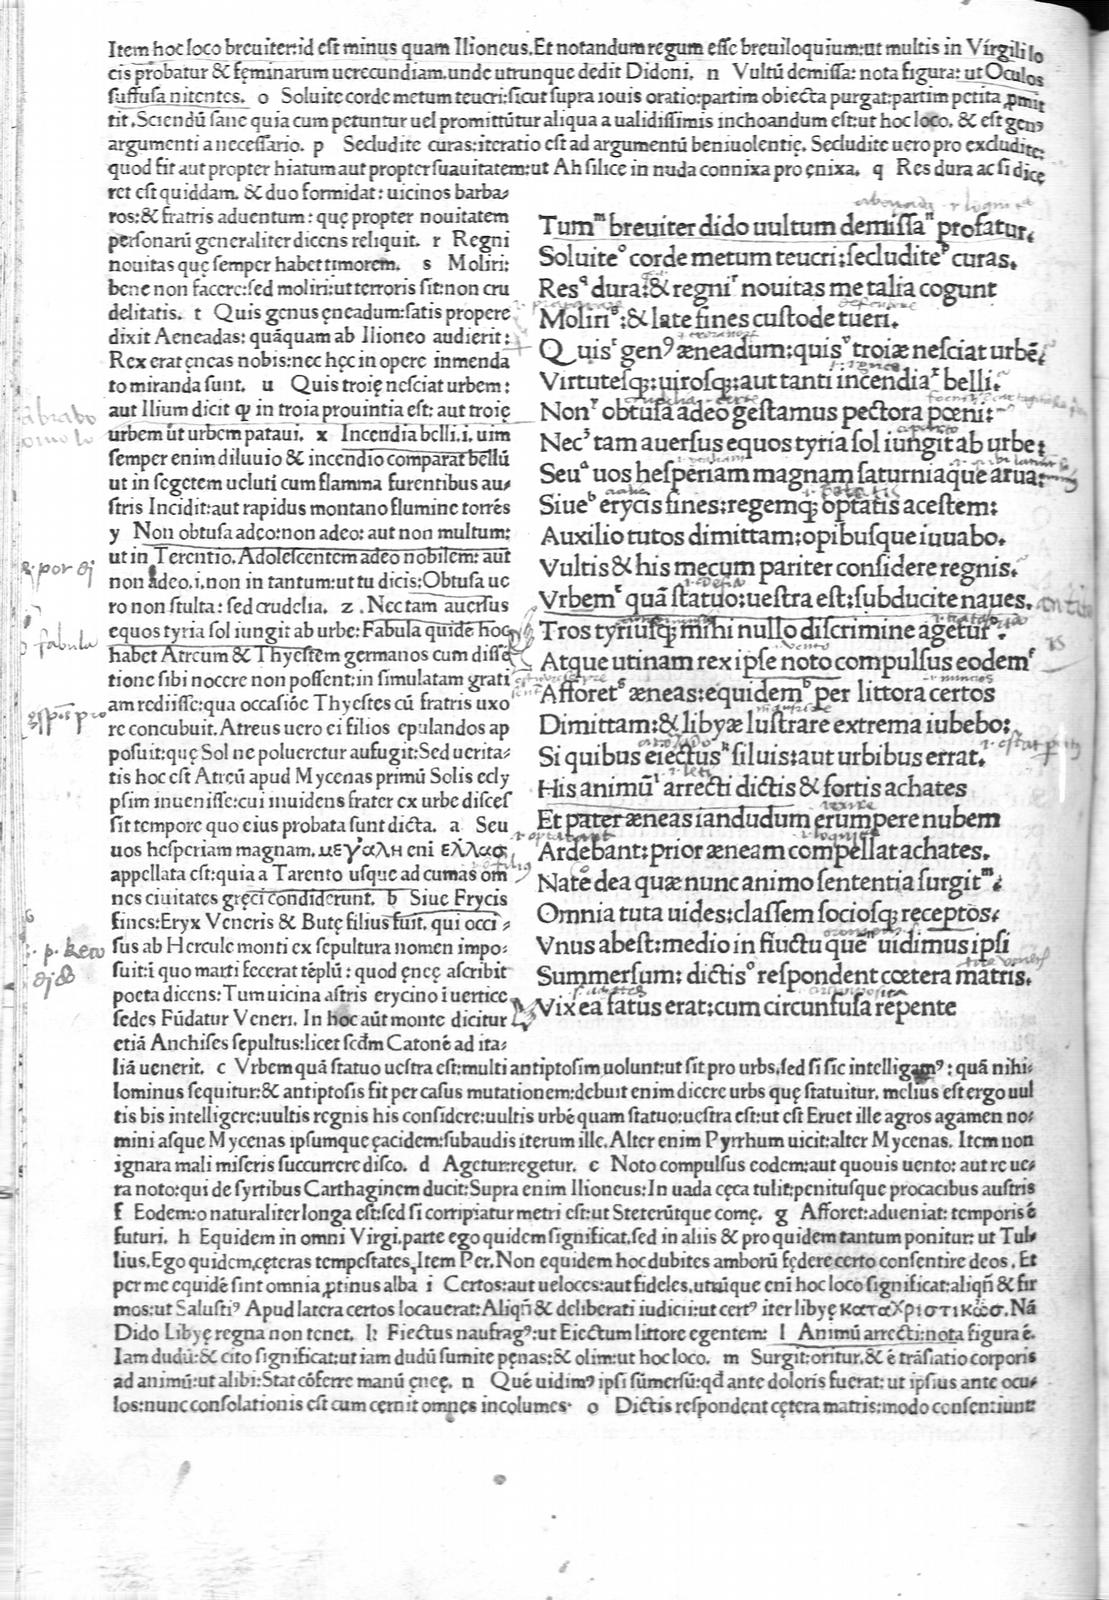 Item hoc loco breuiter:id est minus quam Ilioneus.Et notandum regum esse breuiloquium:ut multis in Virgili lo
cis probatur & fęminarum uerecundiam.unde utrunque dedit Didoni. n Vultū demissa: nota figura: ut Oculos
suffusa nitentes. o Soluite corde metum teucri:sicut supra iouis oratio:partim obiecta purgat:partim petita ꝓmit
tit.Sciendū sane quia cum petuntur uel promittūtur aliqua a ualidissimis inchoandum est:ut hoc loco. & est genꝰ
argumenti a necessario. p Secludite curas:iteratio est ad argumentū beniuolentię. Secludite uero pro excludite:
quod fit aut propter hiatum aut propter suauitatem:ut Ah silice in nuda connixa pro enixa. q Res dura ac si dice
ret est quiddam. & duo formidat: uicinos barba-
ros:& fratris aduentum: quę propter nouitatem
personarū generaliter dicens reliquit. r Regni
nouitas quę semper habet timorem. s Moliri:
bene non facere:sed moliri:ut terroris sit:non cru
delitatis. t Quis genus ęneadum:satis propere
dixit Aeneadas: quāquam ab Ilioneo audierit:
Rex erat ęneas nobis:nec hęc in opere inmenda
to miranda sunt. u Quis troię nesciat urbem:
aut Ilium dicit ꝙ in troia prouintia est: aut troię
urbem ut urbem pataui. x Incendia belli.i. uim
semper enim diluuio & incendio comparat bellū
ut in segetem ueluti cum flamma furentibus au-
stris Incidit:aut rapidus montano flumine torrēs
y Non obtusa adeo:non adeo: aut non multum:
ut in Terentio.Adolescentem adeo nobilem: aut
non adeo.i.non in tantum:ut tu dicis:Obtusa ue
ro non stulta: sed crudelia. z . Nec tam auersus
equos tyria sol iungit ab urbe:Fabula quidē hoc
habet Atreum & Thyestem germanos cum disse
tione sibi nocere non possent:in simulatam grati
am rediisse:qua occasiōe Thyestes cū fratris uxo
re concubuit.Atreus uero ei filios epulandos ap
posuit:quę Sol ne pollueretur aufugit:Sed uerita-
tis hoc est Atreū apud Mycenas primū Solis ecly
psim inuenisse:cui inuidens frater ex urbe disces
sit tempore quo eius probata sunt dicta. a Seu
uos hesperiam magnam.μεγάλη eni ελλασ
appellata est:quia a Tarento usque ad cumas om
nes ciuitates gręci condiderunt. b Siue Erycis
fines:Eryx Veneris & Butę filius fuit. qui occi-
sus ab Hercule monti ex sepultura nomen impo-
suit:i quo marti fecerat tēplū: quod ęneę ascribit
poeta dicens:Tum uicina astris erycino i uertice
sedes Fūdatur Veneri. In hoc aūt monte dicitur
etiā Anchises sepultus:licet scdm Catonē ad ita-
liā uenerit. c Vrbem quā statuo uestra est:multi antiptosim uolunt:ut sit pro urbs.sed si sic intelligamꝰ: quā nihi-
lominus sequitur:& antiptosis fit per casus mutationem:debuit enim dicere urbs quę statuitur. melius est ergo uul
tis bis intelligere:uultis regnis his considere:uultis urbē quam statuo:uestra est:ut est Eruet ille agros agamen no-
mini asque Mycenas ipsumque ęacidem:subaudis iterum ille.Alter enim Pyrrhum uicit:alter Mycenas. Item non
ignara mali miseris succurrere disco. d Agetur:regetur. e Noto compulsus eodem:aut quouis uento: aut re ue-
ra noto:qui de syrtibus Carthaginem ducit:Supra enim Ilioneus:In uada cęca tulit:penitusque procacibus austris
f Eodem:o naturaliter longa est:sed si corripiatur metri est:ut Steterūtque comę. g Afforet:adueniat: temporis ē
futuri. h Equidem in omni Virgi.parte ego quidem significat.sed in aliis & pro quidem tantum ponitur: ut Tul-
lius.Ego quidem.cęteras tempestates.Item Per.Non equidem hoc dubites amborū fędere certo consentire deos. Et
per me equidē sint omnia ꝓtinus alba i Certos:aut ueloces:aut fideles.utrūque eni hoc loco significat:aliqn̄ & fir
mos:ut Salustiꝰ Apud latera certos locauerat:Aliqn̄ & deliberati iudicii:ut certꝰ iter libyę καταχριστικῶσ.Nā
Dido Libyę regna non tenet. k Eiectus naufragꝰ:ut Eiectum littore egentem: l Animū arrecti:nota figura ē.
Iam dudū:& cito significat:ut iam dudū sumite pęnas:& olim:ut hoc loco. m Surgit:oritur.& ē trāslatio corporis
ad animū:ut alibi:Stat cōferre manū ęneę. n Quē uidimꝰ ipsi sūmersū:qđ ante doloris fuerat: ut ipsius ante ocu-
los:nunc consolationis est cum cernit omnes incolumes· o Dictis respondent cętera matris:modo consentiunt
Tumᵐ breuiter dido uultum demissaⁿ profatur.
Soluiteᵒ corde metum teucri:secluditeᵖ curas.
Resq dura:& regniʳ nouitas me talia cogunt
Moliriˢ:& late fines custode tueri.
Quisᵗ genꝰ æneadum:quisᵛ troiæ nesciat urbē:
Virtutesq;:uirosq;:aut tanti incendiaˣ belli.
Nonʸ obtusa adeo gestamus pectora pœni:
Necᶻ tam auersus equos tyria sol iungit ab urbe:
Seuᵃ uos hesperiam magnam saturniaque arua:
Siueᵇ erycis fines:regemq; optatis acestem:
Auxilio tutos dimittam:opibusque iuuabo.
Vultis & his mecum pariter considere regnis.
Vrbemᶜ quā statuo:uestra est:subducite naues.
Tros tyriusq; mihi nullo discrimine ageturᵈ.
Atque utinam rex ipse notoᵉ compulsus eodemᶠ
Afforetᵍ æneas:equidemʰ per littora certos
Dimittam:& libyæ lustrare extrema iubebo:
Si quibus eiectusᵏ siluis:aut urbibus errat.
His animūˡ arrecti dictis & fortis achates
Et pater æneas iandudum erumpere nubem
Ardebant:prior æneam compellat achates.
Nate dea quæ nunc animo sententia surgitᵐ:
Omnia tuta uides:classem sociosq; receptos:
Vnus abest:medio in fluctu quēⁿ uidimus ipsi
Summersum: dictisᵒ respondent cœtera matris.
Vix ea fatus erat:cum circunfusa repente
fabula